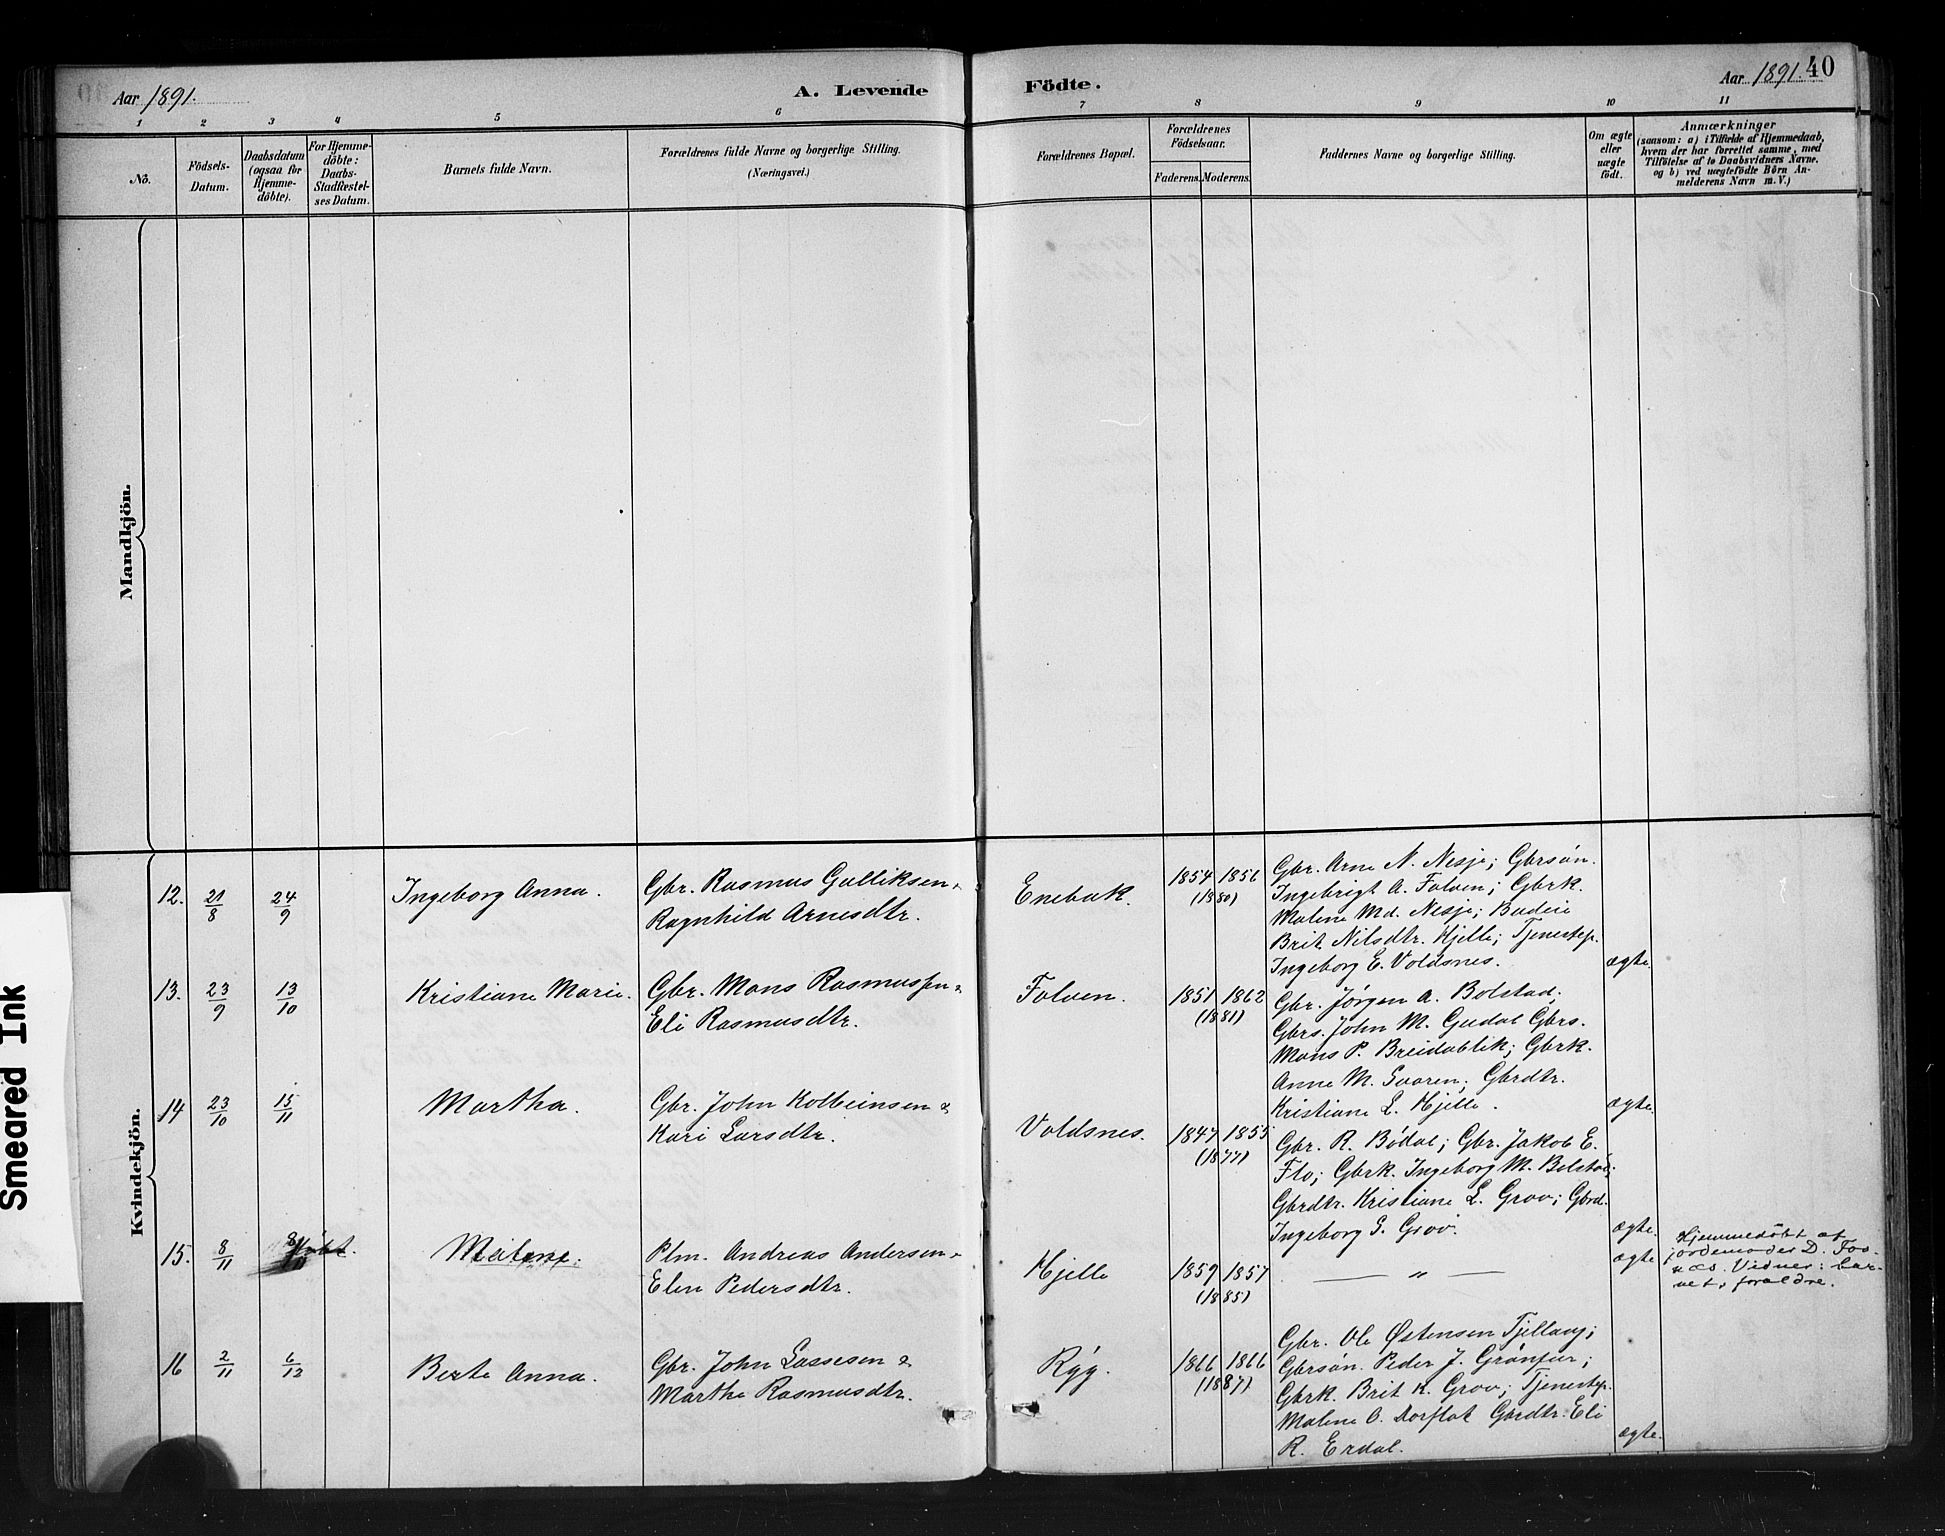 Smeared Ink
Aar 1891.
A. Levende
Födte.
Aar 1891.
40
1 2 3 4 5 6
7 8 9 10 11
No.
Födsels-
Datum.
Daabsdatum
(ogsaa for
Hjemme-
döbte).
For Hjemme-
döbte:
Daabs-
Stadfestel-
ses Datum.
Barnets fulde Navn.
Forældrenes fulde Navne og borgerlige Stilling.
(Næringsvei.)
Forældrenes Bopæl.
Forældrenes
Födselsaar.
Faderens. Moderens.
Faddernes Navne og borgerlige Stilling.
Om ægte
eller
uægte
födt.
Anmærkninger
(saasom: a) i Tilfælde af Hjemmedaab,
hvem der har forrettet samme, med
Tilföielse af to Daabsvidners Navne,
og b) ved uægtefödte Börn An-
melderens Navn m. V.)
Mandkjön.
Kvindekjön.
12. 21/8 24/9
Ingeborg Anna.
Gbr. Rasmus Gulliksen &
Ragnhild Arnesdtr.
Enebak.
1854 1856
(1880)
Gbr. Arne N. Nesje; Gbrsøn.
Ingebrigt A. Folven; Gbrk.
Malene Md. Nesje; Budeie
Brit Nilsdtr. Hjelle; Tjenestep.
Ingeborg E. Voldsnes.
ægte.
13. 23/9 13/10
Kristiane Marie.
Gbr. Mons Rasmussen &
Eli Rasmusdtr.
Folven.
1851 1862
(1881)
Gbr. Jørgen A. Bolstad;
Gbrs. John M. Gudal Gbrs.
Mons P. Breidablik; Gbrk.
Anne M. Svoren; Gbrdtr.
Kristiane L. Hjelle.
ægte.
14 23/10 15/11
Martha.
Gbr. John Kolbeinsen &
Kari Larsdtr.
Voldsnes.
1847 1855
(1877)
Gbr. R. Bødal; Gbr. Jakob E.
Flo; Gbrk. Ingeborg M. Bolstad;
Gbrdtr. Kristiane L. Grov; Gbrd.
Ingeborg S. Grov.
ægte.
15. 8/11 8/11
Malene.
Plm. Andreas Andersen &
Elen Pedersdtr.
Hjelle
1859 1857
(1885)
— " —
ægte
Hjemmedöbt af
jordemoder D. Fos-
næs. Vidner: bar-
nets forældre.
16 2/11 6/12
Berte Anna.
Gbr. John Lassesen &
Marthe Rasmusdtr.
Ryg.
1866 1866
(1887)
Gbr. Ole Østensen Tjellaug;
Gbrsøn. Peder J. Grønfur;
Gbrk. Brit K. Grov; Tjenestep.
Malene O. Dorflat Gbrdtr. Eli
R. Erdal.
ægte.